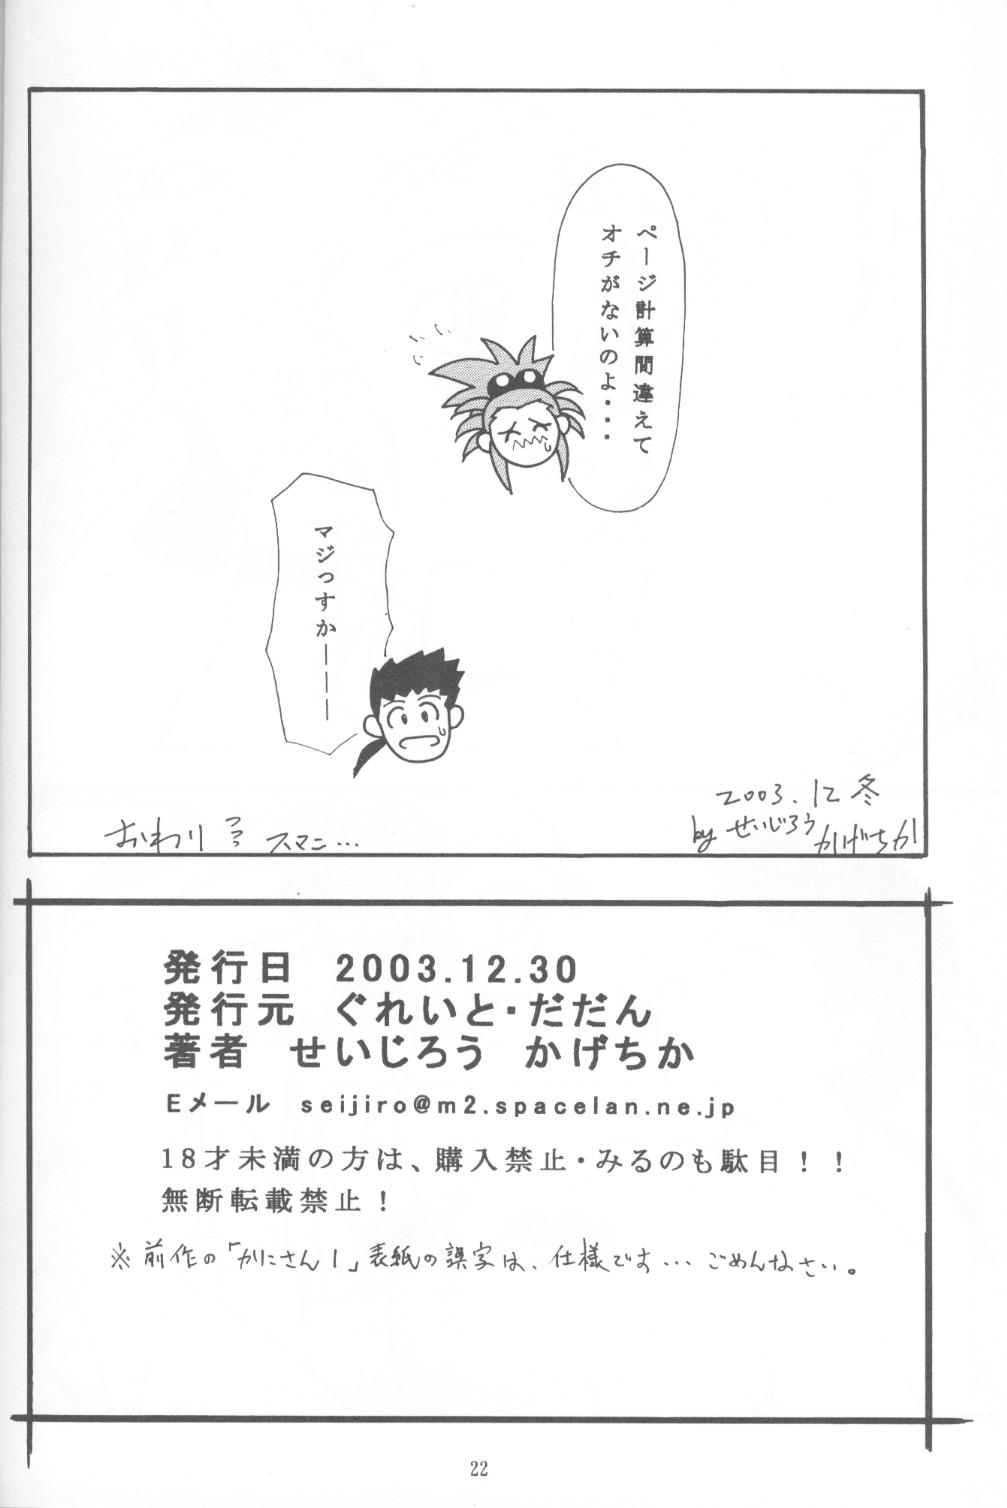 ページ計算間違えて
オチがないのよ・・・
マジっすか———
2003.12 冬
by せいじろう
かげちか
おわり
スマニ…
発行日　2003.12.30
発行元　ぐれいと・だだん
著者　せいじろう　かげちか
Eメール　seijiro@m2.spacelan.ne.jp
18才未満の方は、購入禁止・みるのも駄目！！
無断転載禁止！
※前作の「かにさん1」表紙の誤字は、仕様です…ごめんなさい。
22